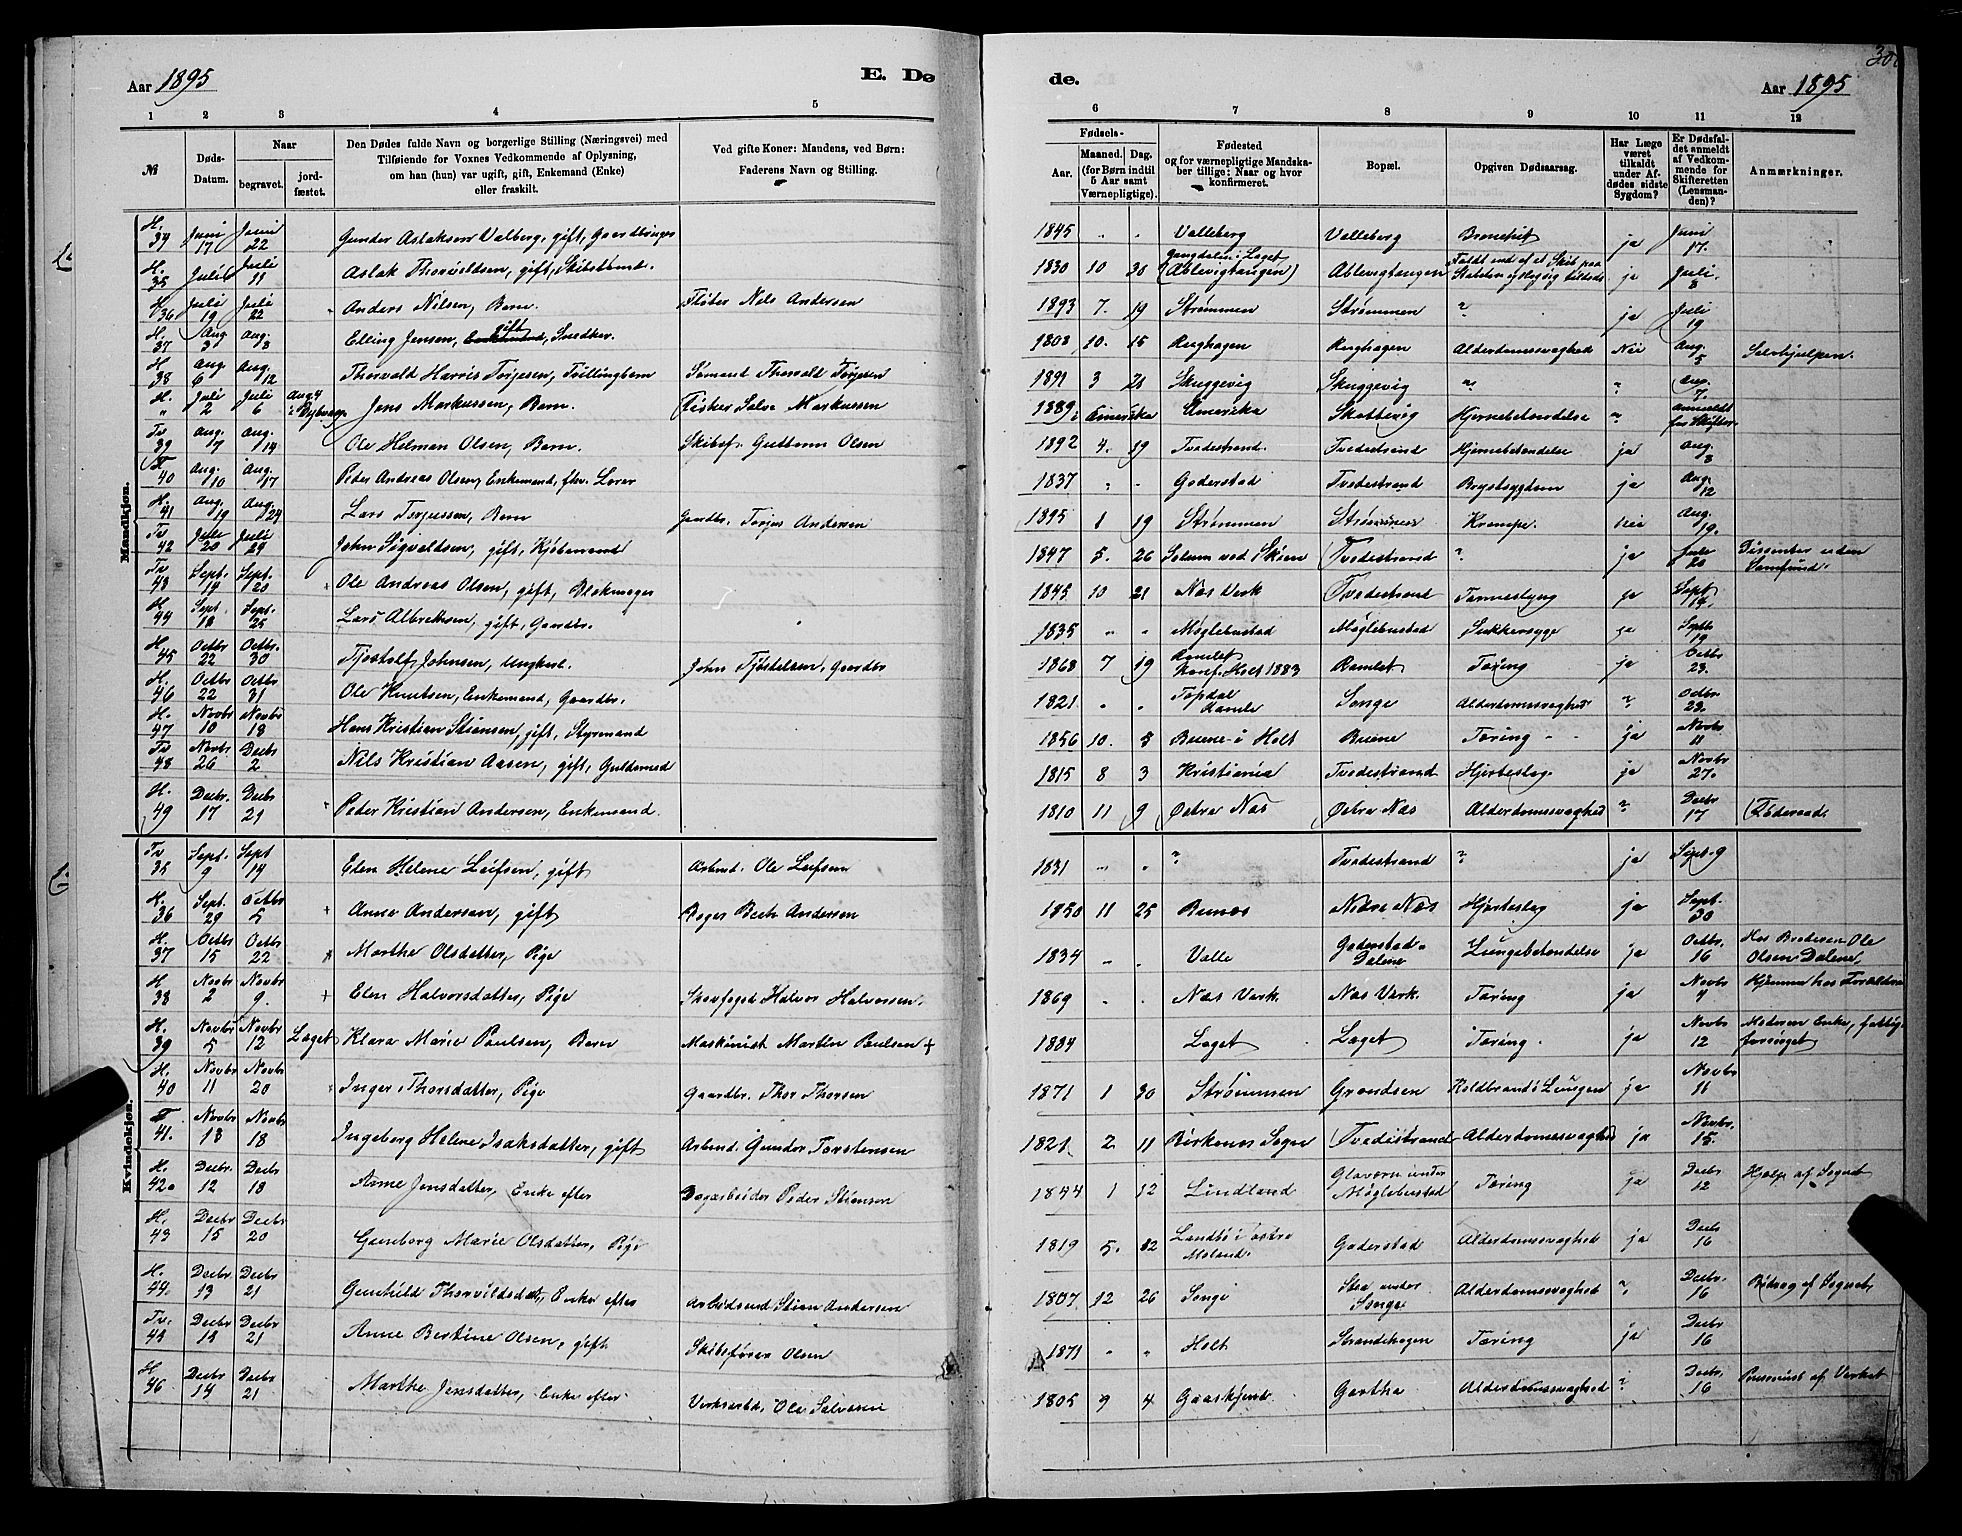 Aar 1895
E. Dø
de.
Aar 1895
1 2 3 4 5 6 7 8 9 10 11 12
№
Døds-Datum.
Naar
begravet.
jordfæstet.
Den Dødes fulde Navn og borgerlige Stilling (Næringsvei) med
Tilføiende for Voxnes Vedkommende af Oplysning,
om han (hun) var ugift, gift, Enkemand (Enke)
eller fraskilt.
Ved gifte Koner: Mandens, ved Børn:
Faderens Navn og Stilling.
Fødsels-
Aar.
Maaned. Dag.
(for Børn indtil
5 Aar samt
Værnepligtige).
Fødested
og for værnepligtige Mandska-
ber tillige: Naar og hvor
konfirmeret.
Bopæl.
Opgiven Dødsaarsag.
Har Læge
været
tilkaldt
under Af-
dødes sidste
Sygdom?
Er Dødsfal-
det anmeldt
af Vedkom-
mende for
Skifteretten
(Lensman-
den)?
Anmærkninger.
Mandkjøn.
H. 34 Juni 17 Juni 22 Gunder Aslaksen Valberg, gift, Gaardbruger 1845 " " Valleberg Valleberg ja Juni 17.
H. 35 Juli Juli 11 Aslak Thorvildsen, gift, 1830 10 20 (Ablevigtangen) Ablevigtangen Faldt ned af et Skib paa ja Juli 8
H. 36 Juli 19 Juli 22 Anders Nilsen, Barn. Nils Andersen 1893 7. 19 Strømmen Strømmen ? ja Juli 19
H. 37 Aug 3 Aug. 8 Elling Jensen, gift, Snedker. 1808 10. 15 Rughagen Rughagen Alderdomssvaghed Nei Aug. 5 Selvhjulpen.
H. 38 Aug. 6 Aug. 12 Thorvald Harris Torjesen, Tvillingbarn Sømand Thorvald Torjesen 1891 3 21 Skuggevig Skuggevig " " Aug. 7.
H. " Juli 2 Juli 6 Aug. 4 Jens Markussen, Barn. Fisker Salve Markussen 1889. Amerika Amerika Hjernebetændelse " anmeldt
Tv 39 Aug. 7 Aug. 14 Ole Helman Olsen, Barn. Skibsf. Guttorm Olsen 1892 4. 19 Tvedestrand. Tvedestrand Hjernebetændelse ja Aug. 8
40 Aug. 10 Aug. 17 Peder Andreas Olsen, Enkemand, 1837 " - Goderstad Tvedestrand Brystsygdom ja Aug. 12
H. 41 Aug. 19 Aug. 24 Lars Torjussen, Barn Gaardbr. Torjus Andersen 1895 1 19 Strømmen Strømmen Krampe. Nei Aug. 19.
Tv 42 Juli 20 Juli 29 John Sigvaldsen, gift, Kjøbmand 1847 5. 26 Solum ved Skien Tvedestrand ? ja Juli 20 Dissenter uden Samfund.
Tv 43 Sept. 14 Sept. 20 Ole Andreas Olsen, gift, Blokmager 1845 10 21 Næs Verk Tvedestrand ja Sept 14.
H. 44 Sept. 18 Sept. 25 Lars Albrektsen, gift, Gaardbr. 1835 " " Møglebustad Møglebustad Sukkersyge ja Septb 19
H. 45 Octbr 22 Octbr. 30 Tjostolf Johnsen, Ungkarl. John Tjostelsen, Gaardbr 1868 7 19 Ramlet Konf. Holt 1883 Ramlet Tæring ja Octbr 23.
H. 46 Octbr 22 Octbr 31 Ole Knudsen, Enkemand, Gaardbr. 1821 " " Topdal Songe Alderdomssvaghed " Octbr. 23.
H. 47 Novbr 10 Novbr 18 Hans Kristian Stiansen, gift, Styrmand 1856 10. 3 Buene i Holt Buene Tæring ja Novbr 11
Tv 48 Novbr. 26 Decbr 2 Nils Kristian Aasen, gift, Guldsmed 1815 8 3 Kristiania Tvedestrand Hjerteslag. ja Novbr 27.
H. 49 Decbr. 17 Decbr 21 Peder Kristian Andersen, Enkemand. 1810 11 9 Østre Næs Østre Næs Alderdomssvaghed " Decbr 17 Føderaad.
Kvindekjøn.
Tv 35 Sept. 9 Sept 14 Elen Helene Leifsen, gift Arbmd. Ole Leifsen 1831 " " ? Tvedestrand ? ja Sept. 9
H. 36 Sept. 29 Octbr 5 Anne Andersen, gift Berh Andersen 1850 11 25 Nedre Næs Hjerteslag ja Sept. 30
H. 37 Octbr 15 Octbr 22 Marthe Olsdatter, Pige 1834 " " Valle Goderstad Dalene Lungebetændelse ja Octbr. 16 Hos Broderen Ole Olsen Dalene.
H. 38 Novbr 2 Novbr 9. Elen Halvorsdatter, Pige Skovfoged Halvor Halvorsen. 1869 " " Næs Verk. Næs Verk. Tæring ja Novbr 4 Hjemme hos Forældrene
H. 39 Novbr 5 Novbr 12 Laget Klara Marie Paulsen, Barn Maskinist Martin Paulsen + 1884 Laget Laget Tæring. ja Novbr 12 Moderen Enke, fattigforsørget
H. 40 Novbr 11 Novbr 20 Inger Thorsdatter, Pige Gaardbr. Thor Thorsen 1871 1 30 Strømmen Grændsen Koldbrand i Lungen ja Novbr 11
41. Novbr 13 Novbr 18 Ingeborg Helene Isaksdatter, gift Arbmd. Gunder Torstensen 1821. 2 11 Birkenes Sogn Tvedestrand Alderdomssvaghed ja Novbr. 15.
H. 42. Decbr. 12 Decbr 18 Anne Jensdatter, Enke efter Dagarbeider Peder Stiansen 1844 1 12 Lindland under Møglebustad Tæring ja Decbr 12 Hjælp af Sognet
H. 43 Decbr 15 Decbr 20 Gunborg Marie Olsdatter, Pige 1819 5. 22 Landtø i østre Moland. Goderstad Alderdomssvaghed ja Decbr 16
H. 44. Decbr 13 Decbr 21 Gunhild Thorvildsdat, Enke efter Arbeidsmd Stian Andersen 1807 12 26 Songe under Songe Alderdomssvaghed " Decbr. 16 Bidrag af Sognet
Tv. 45 Decbr 13 Decbr 21 Anne Bertine Olsen, gift Skibsfører Olsen 1871 " " Holt Strandehagen Tæring ja Decbr 16
H. 46 Decbr 14 Decbr 21 Marthe Jensdatter, Enke efter Verksarbd. Ole Salvesen 1805 9 4 Gaaskjend Gartha Alderdomssvaghed ? Decbr. 16 af Verket